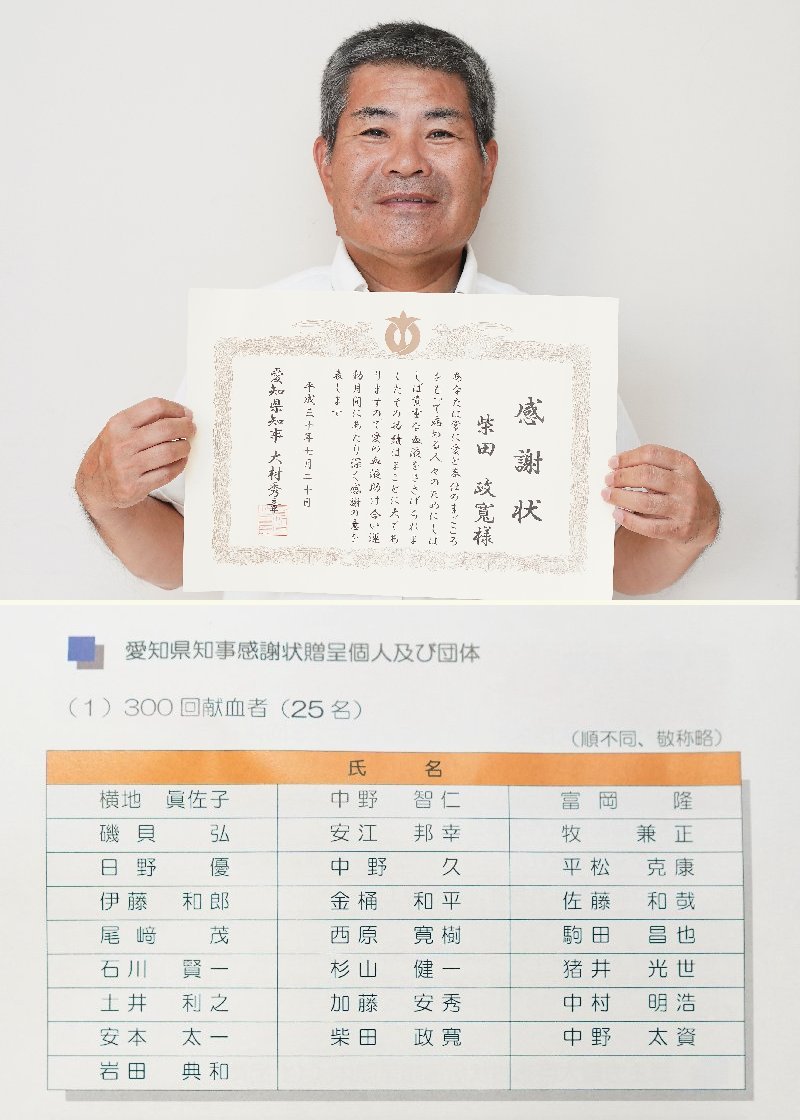 感謝状
柴田 政寬様
あなたは常に愛と奉仕のまごころ
をもって病める人々のためにしば
しば貴重な血液をささげられまし
たその功績はまことに大であ
りますので愛の血液助け合い運
動月間にあたり深く感謝の意を
表します
平成三十年七月二十日
愛知県知事 大村秀章
愛知県知事感謝状贈呈個人及び団体
(1)300回献血者(25名)
(順不同、敬称略)
氏 名
横地 眞佐子 中野 智仁 富岡 隆
磯貝 弘 安江 邦幸 牧 兼正
日野 優 中野 久 平松 克康
伊藤 和郎 金桶 和平 佐藤 和哉
尾﨑 茂 西原 寛樹 駒田 昌也
石川 賢一 杉山 健一 猪井 光世
土井 利之 加藤 安秀 中村 明浩
安本 太一 柴田 政寬 中野 太資
岩田 典和